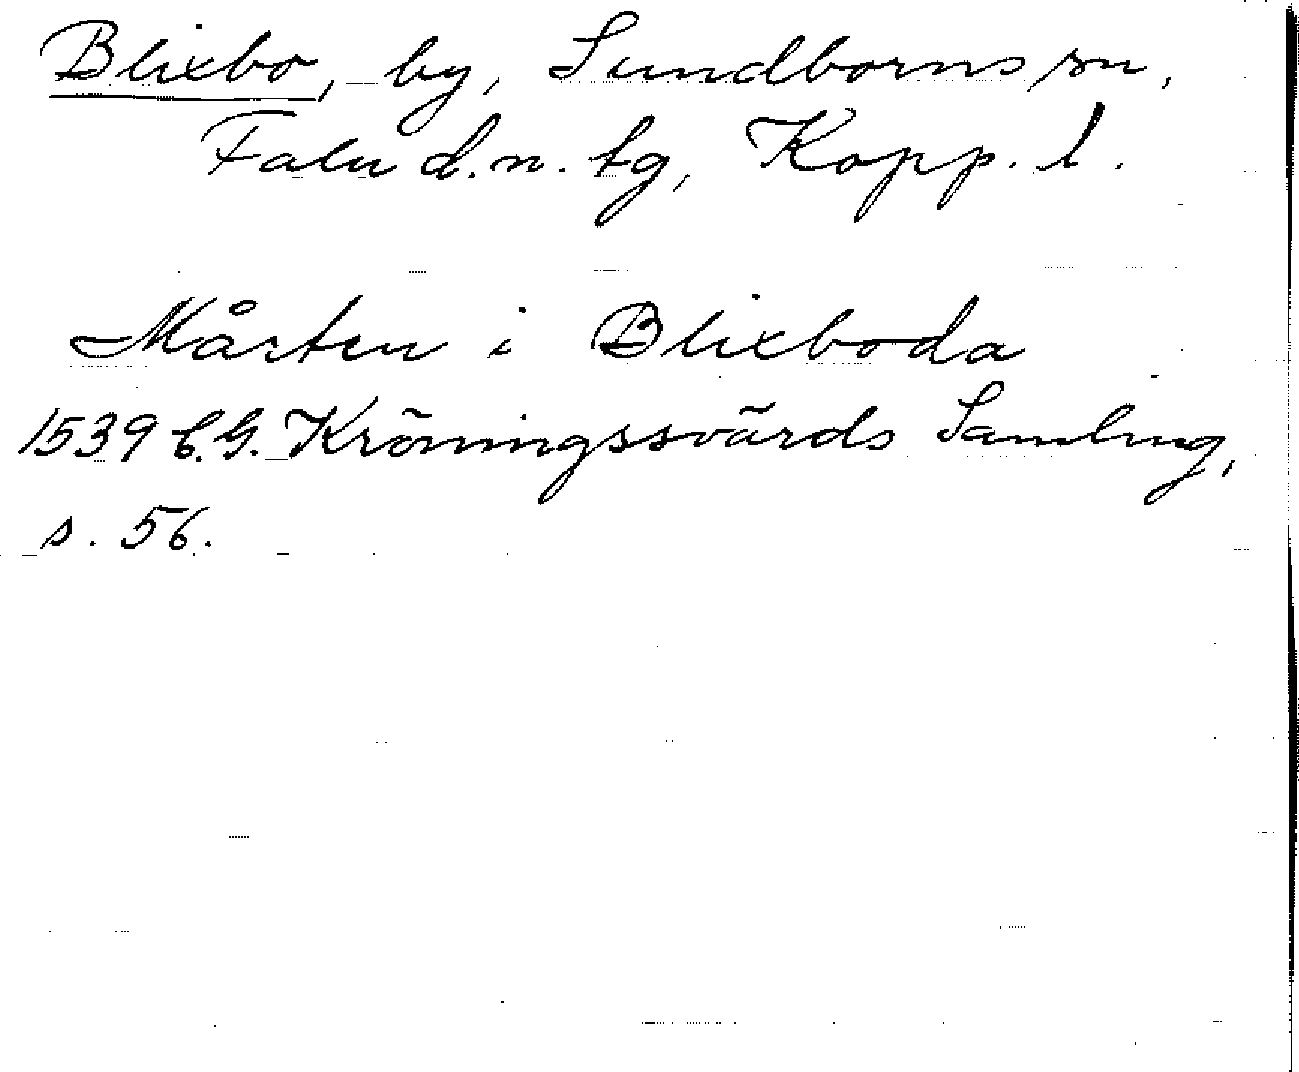 Blixbo, by, Sundborns sn,
Falu d.n. tg, Kopp. l.
Mårten i Blixboda
1539 C.G. Kröningssvärds Samling,
s. 56.